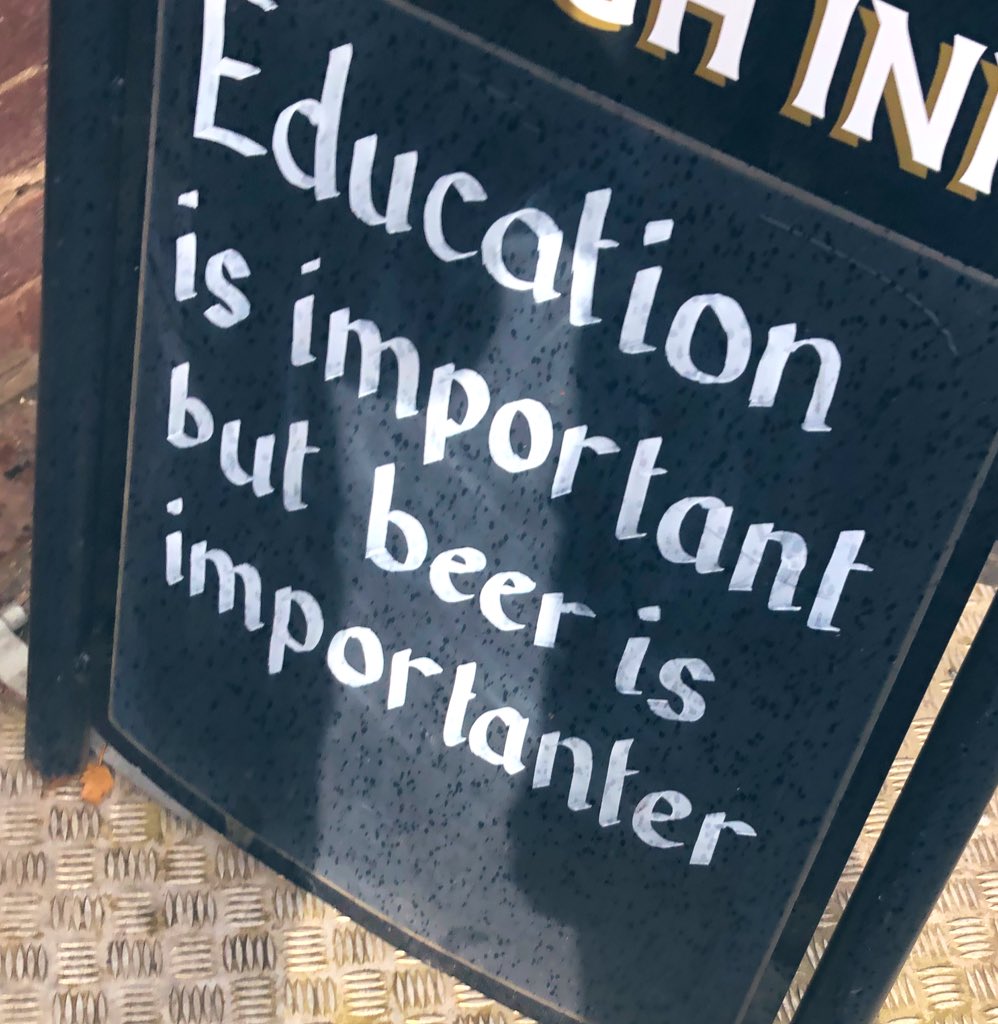 INN
Education
is important
but beer is
importanter